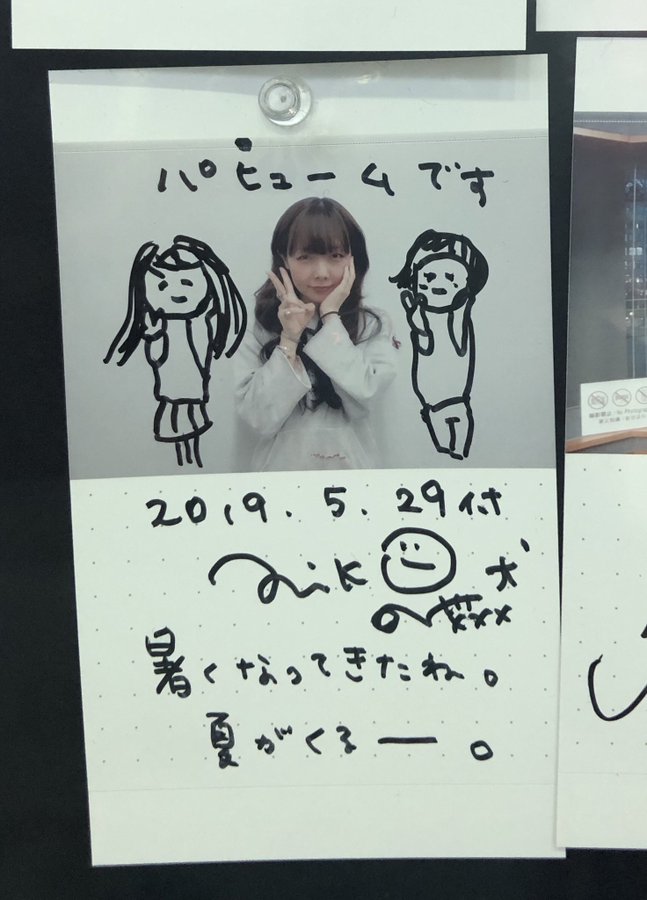 パヒュームです
2019.5.29付
mik
犬
暑くなってきたね。
夏がくるー。